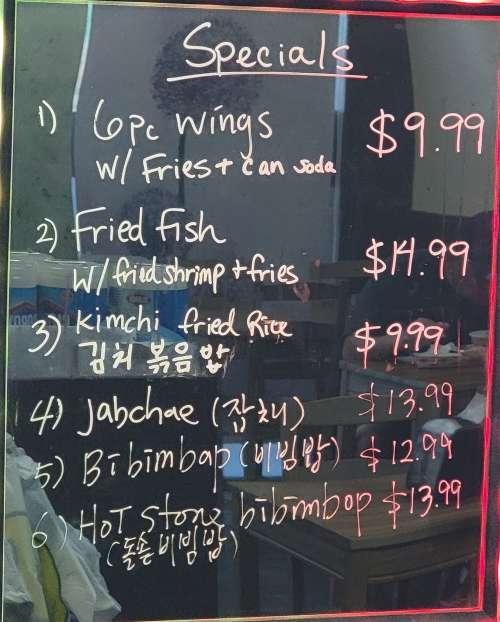 Specials
1) 6pc wings $9.99
w/ Fries + can soda
2) Fried Fish
w/ fried shrimp + fries $14.99
3) Kimchi fried Rice $9.99
김치 볶음 밥
4) Jabchae (잡채) $13.99
5) Bibimbap (비빔밥) $12.99
6) HoT Stone bibimbop $13.99
(돌솥 비빔밥)